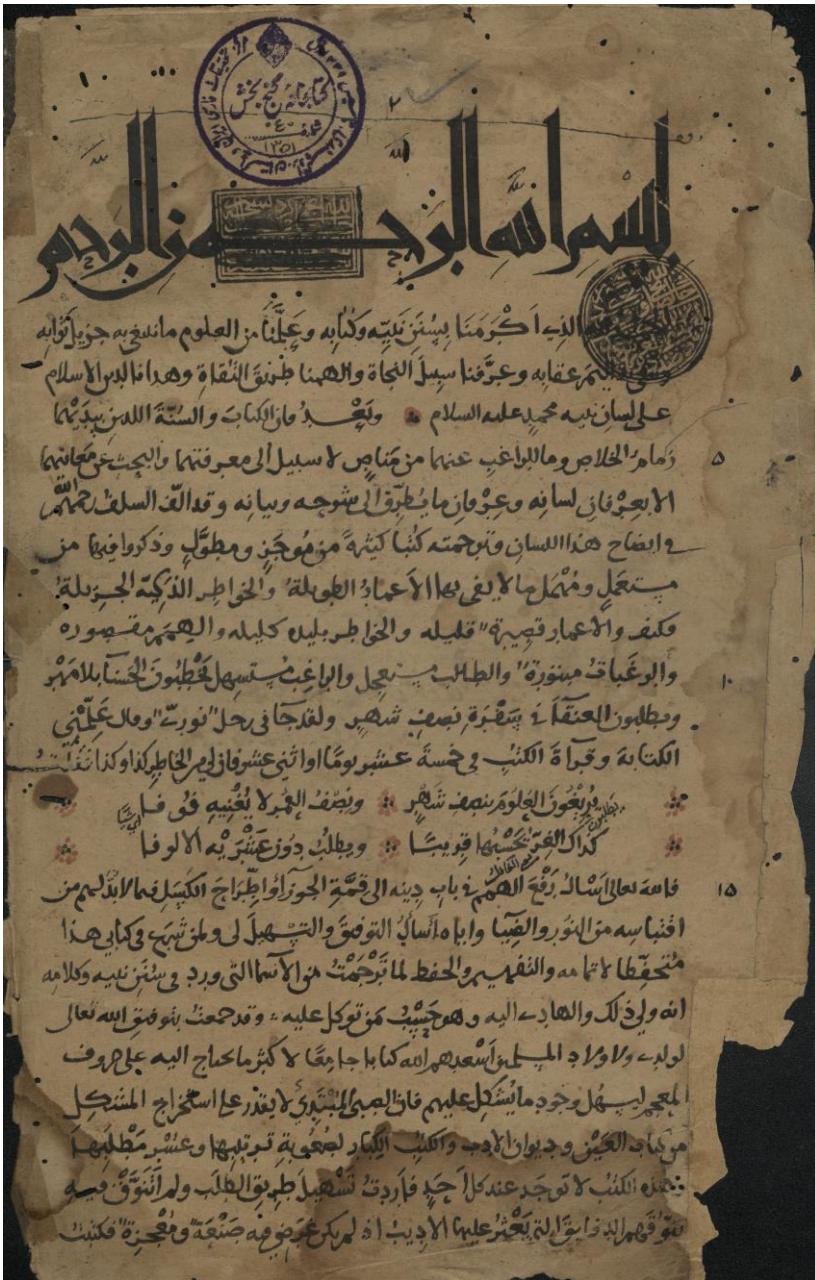 كتابخانه گنج بخش
١٣٥١
٢
بسم الله الرحمن الرحيم
الذي اكرمنا بسنن نبيه وكتابه وعلمنا من العلوم ما نبتغي به جزيل ثوابه
عقابه وعرفنا سبيل النجاة والهمنا طريق التقاة وهدانا لدين الاسلام
على لسان نبيه محمد عليه السلام وبعد فان الكتاب والسنة اللذين بيديهما
زمام الخلاص وما للراغب عنهما من مناص لا سبيل الى معرفتهما والبحث عن معانيهما
٥
الا بعرفان لسانه وعرفان ما يطرق الى شوحه وبيانه وقد الف السلف رحمهم الله
في ايضاح هذا اللسان وترجمته كتبا كثيرة من موجز ومطول وذكروا فيها من
مستعمل ومهمل ما لا يفى بها الاعمار الطويلة والخواطر الذكية الجزيلة
فكيف والاعمار قصيرة قليله والخواطر بليده كليله والهمم مقصوره
والرغبات مبتورة والطالب مستعجل والراغب مستسهل يخطبون الحسنا بلا مهر
١٠
ويطلبون العنقآ في سفرة نصف شهر ولقد جانى رجل وقال علمنى
الكتابة وقرآة الكتب في خمسة عشر يوما او اثني عشر فانى الخاطر كذا وكذا فقلت
يريغون العلوم بنصف شهر ونصف العمر لا يغنيه فوفا
كذاك الغر يحسبها قريبا ويطلب دون عشريه الالوفا
فالله تعالى اسال رفع الهمم في باب دينه الى قمة الجوزآ واطراح الكسل فيما لابد لهم من
١٥
اقتباسه من النور والضيا واياه اسال التوفيق والتسهيل لى ولمن شرع في كتابي هذا
متحفظا لاتمامه والتفهيم والحفظ لما ترجمت من الاسما التى ورد في سنن نبيه وكلامه
انه ولى ذلك والهادي اليه وهو حسب من توكل عليه وقد جمعت بتوفيق الله تعالى
لولدي ولاولاد المسلمين اسعدهم الله كتابا جامعا لاكثر ما يحتاج اليه على حروف
المعجم ليسهل وجود ما يشكل عليهم فان الصبى المبتدئ لا يقدر على استخراج المشكل
من كتاب العين وديوان الادب والكتب الكبار لصعوبة ترتيبها وعسر مطلبها
وهذه الكتب لا توجد عند كل احد فاردت تسهيل طريق الطلب ولم اتنوق فيه
تنوقهم الدقايق التى يعثر عليها الاديب اذ لم يكن غرضي فيه صنعة ومعجزة فكتبت